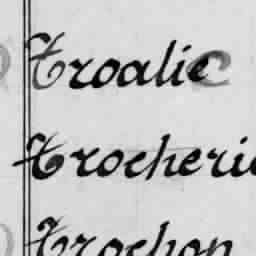 Troalic
Trocheri
Trochon